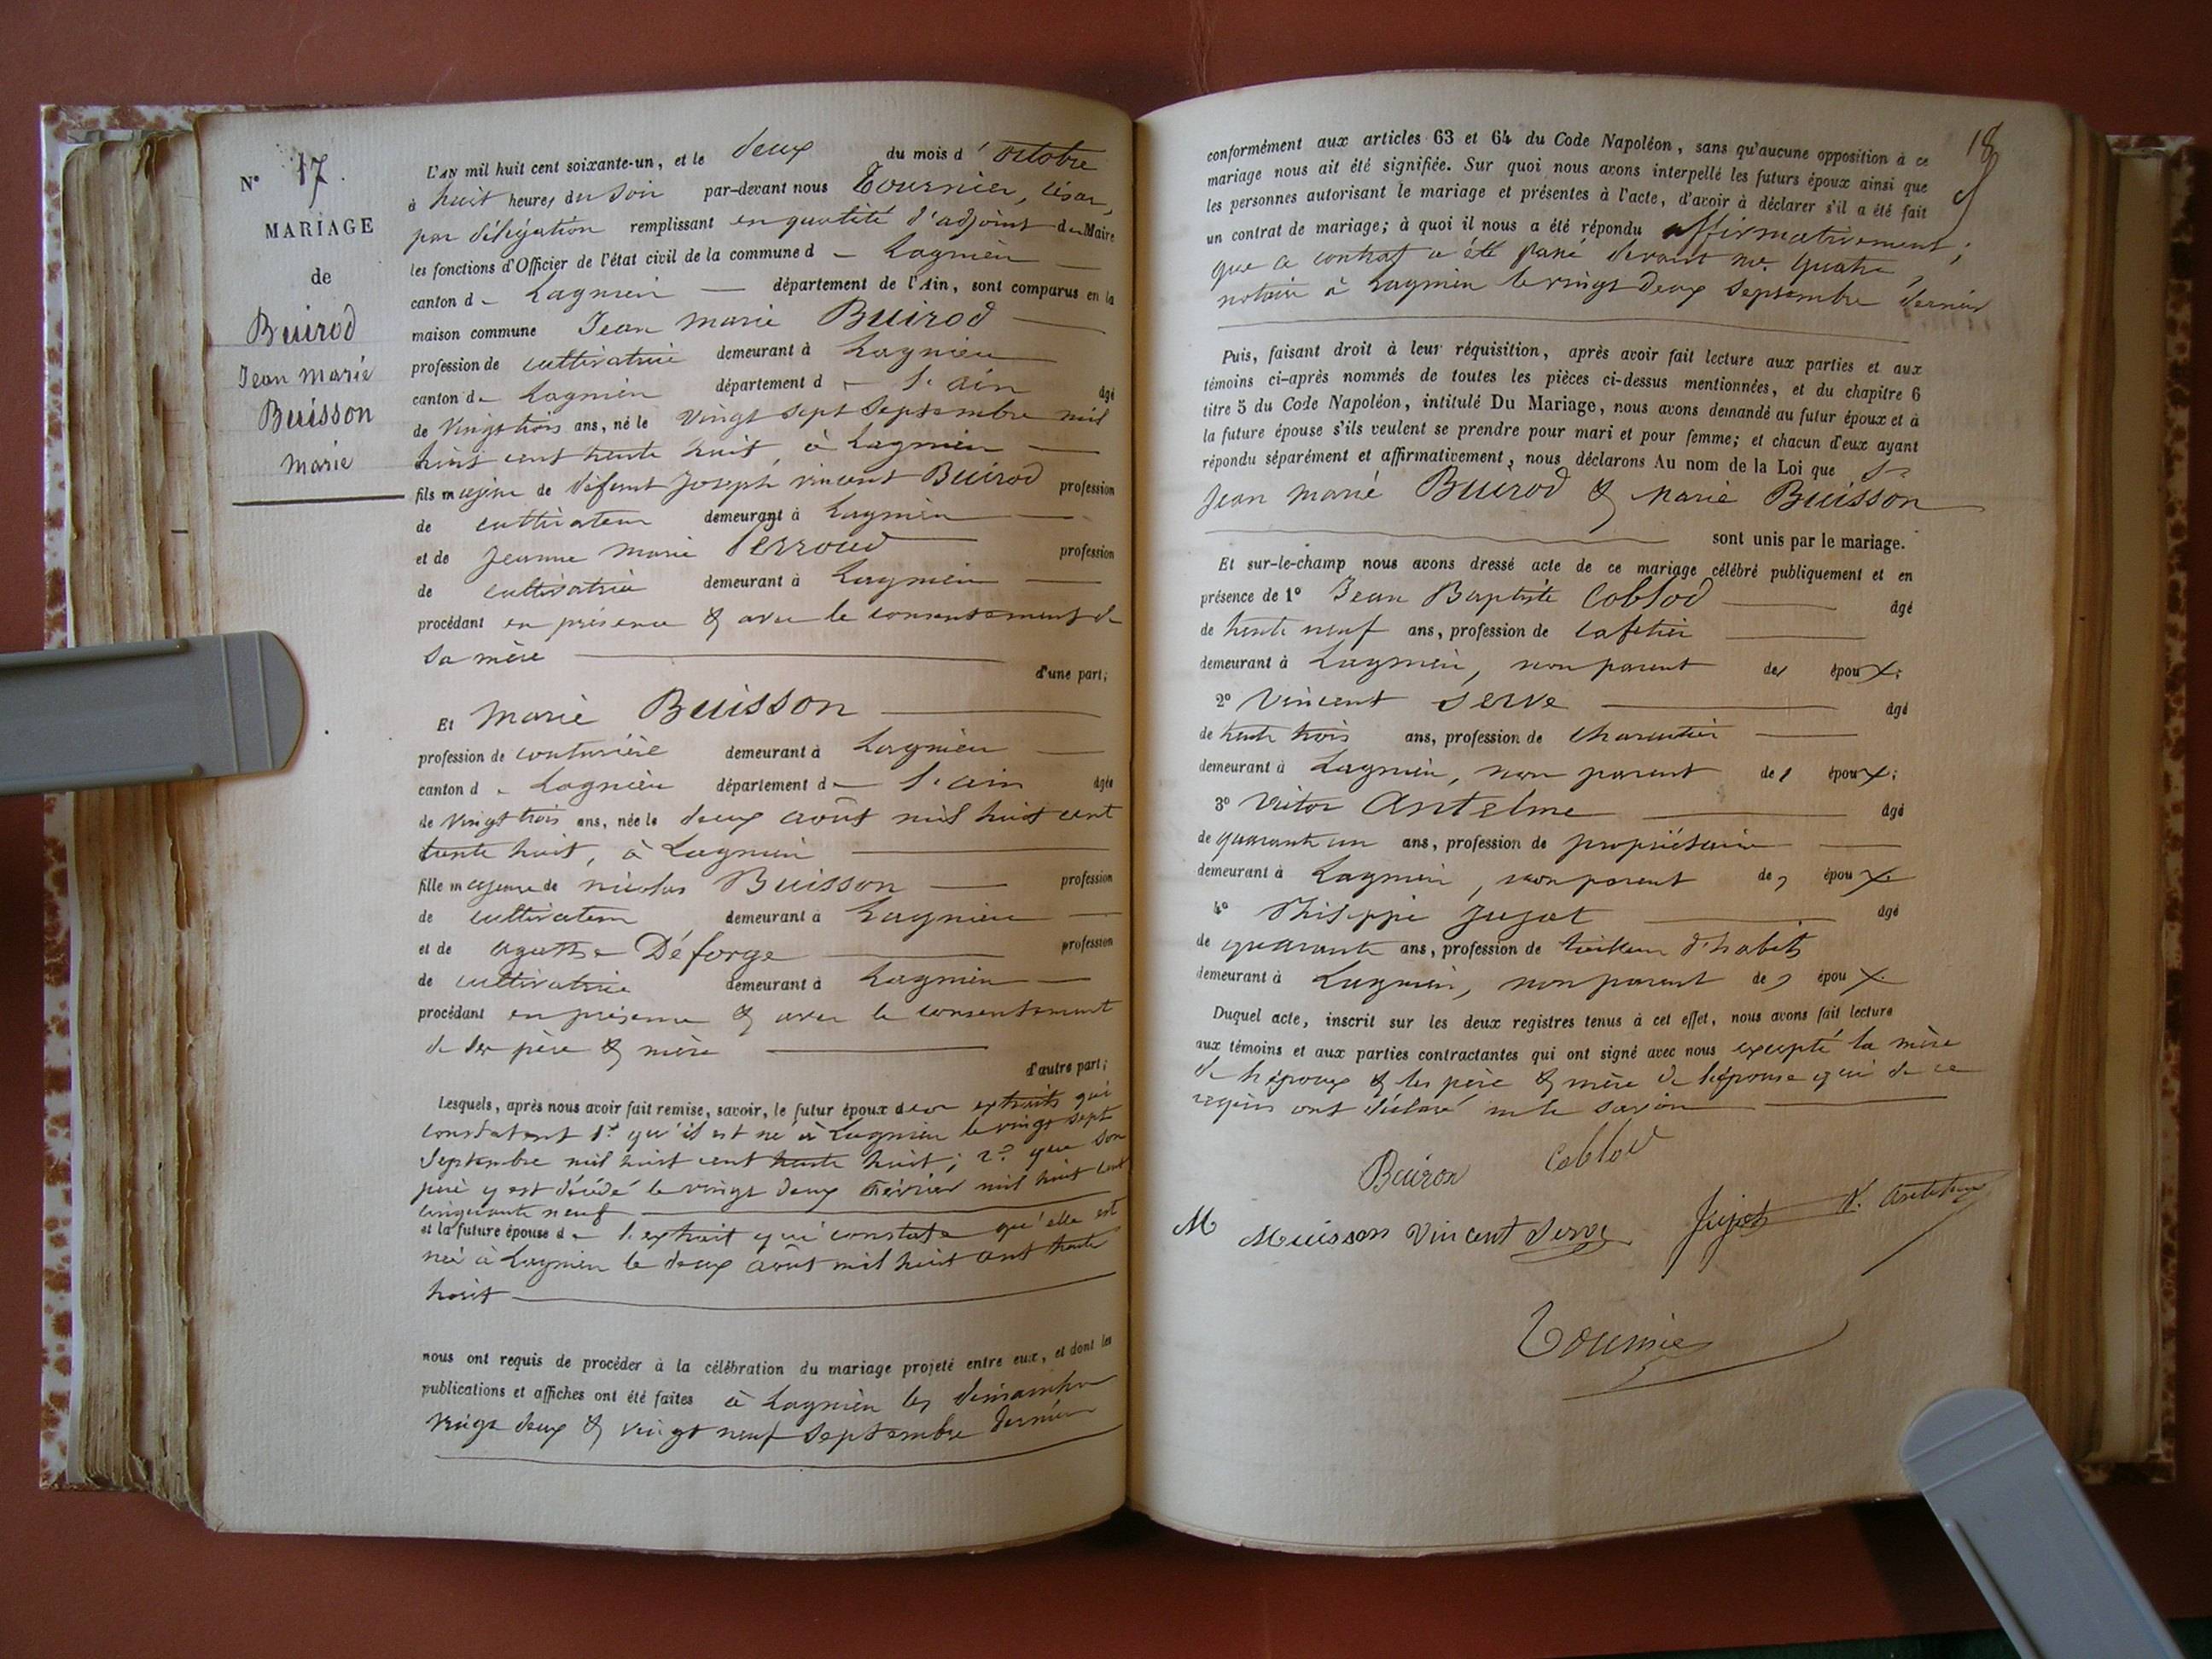 N° 17.
MARIAGE
de
Buirod
Jean Marie
Buisson
Marie
L'AN mil huit cent soixante-un, et le deux du mois d'octobre
à huit heures du soir par-devant nous Tournier, César,
par délégation remplissant en qualité d'adjoint du Maire
les fonctions d'Officier de l'état civil de la commune d Lagnieu
canton d Lagnieu département de l'Ain, sont comparus en la
maison commune Jean Marie Buirod
profession de cultivateur demeurant à Lagnieu
canton de Lagnieu département d l'ain âgé
de Vingt trois ans, né le vingt sept Septembre mil
huit cent trente huit, à Lagnieu
fils majeur de défunt Joseph vincent Buirod profession
de cultivateur demeurant à Lagnieu
et de Jeanne Marie Perroud profession
de cultivatrice demeurant à Lagnieu
procédant en présence & avec le consentement de
sa mère
d'une part;
Et Marie Buisson
profession de couturière demeurant à Lagnieu
canton d Lagnieu département d l'ain âgée
de Vingt trois ans, née le deux août mil huit cent
trente huit, à Lagnieu
fille majeure de nicolas Buisson profession
de cultivateur demeurant à Lagnieu
et de agathe Déforge profession
de cultivatrice demeurant à Lagnieu
procédant en présence & avec le consentement
de ses père & mère
d'autre part;
Lesquels, après nous avoir fait remise, savoir, le futur époux deux extraits qui
constatent 1° qu'il est né à Lagnieu le vingt sept
Septembre mil huit cent trente huit; 2° que son
père y est décédé le vingt deux février mil huit cent
cinquante neuf
et la future épouse d l'extrait qui constate qu'elle est
née à Lagnieu le deux août mil huit cent trente
huit
nous ont requis de procéder à la célébration du mariage projeté entre eux, et dont les
publications et affiches ont été faites à Lagnieu les dimanches
vingt deux & vingt neuf septembre dernier
18
conformément aux articles 63 et 64 du Code Napoléon, sans qu'aucune opposition à ce
mariage nous ait été signifiée. Sur quoi nous avons interpellé les futurs époux ainsi que
les personnes autorisant le mariage et présentes à l'acte, d'avoir à déclarer s'il a été fait
un contrat de mariage; à quoi il nous a été répondu affirmativement;
que ce contrat a été passé devant me. Quatre,
notaire à Lagnieu le vingt deux Septembre dernier
Puis, faisant droit à leur réquisition, après avoir fait lecture aux parties et aux
témoins ci-après nommés de toutes les pièces ci-dessus mentionnées, et du chapitre 6
titre 5 du Code Napoléon, intitulé Du Mariage, nous avons demandé au futur époux et à
la future épouse s'ils veulent se prendre pour mari et pour femme; et chacun d'eux ayant
répondu séparément et affirmativement, nous déclarons Au nom de la Loi que
Jean Marie Buirod & Marie Buisson
sont unis par le mariage.
Et sur-le-champ nous avons dressé acte de ce mariage célébré publiquement et en
présence de 1° Jean Baptiste Coblod âgé
de trente neuf ans, profession de cafetier
demeurant à Lagnieu, non parent des époux;
2° Vincent Serve âgé
de trente trois ans, profession de charcutier
demeurant à Lagnieu, non parent des époux;
3° Victor Antelme âgé
de quarante un ans, profession de propriétaire
demeurant à Lagnieu, non parent des époux
4° Philippe Jujat âgé
de quarante ans, profession de tailleur d'habits
demeurant à Lagnieu, non parent des époux.
Duquel acte, inscrit sur les deux registres tenus à cet effet, nous avons fait lecture
aux témoins et aux parties contractantes qui ont signé avec nous excepté la mère
de l'époux & les père & mère de l'épouse qui de ce
requis ont déclaré ne le savoir
Buirod Coblod
M Muisson Vincent Serve Jujat V. Antelme
Tournier